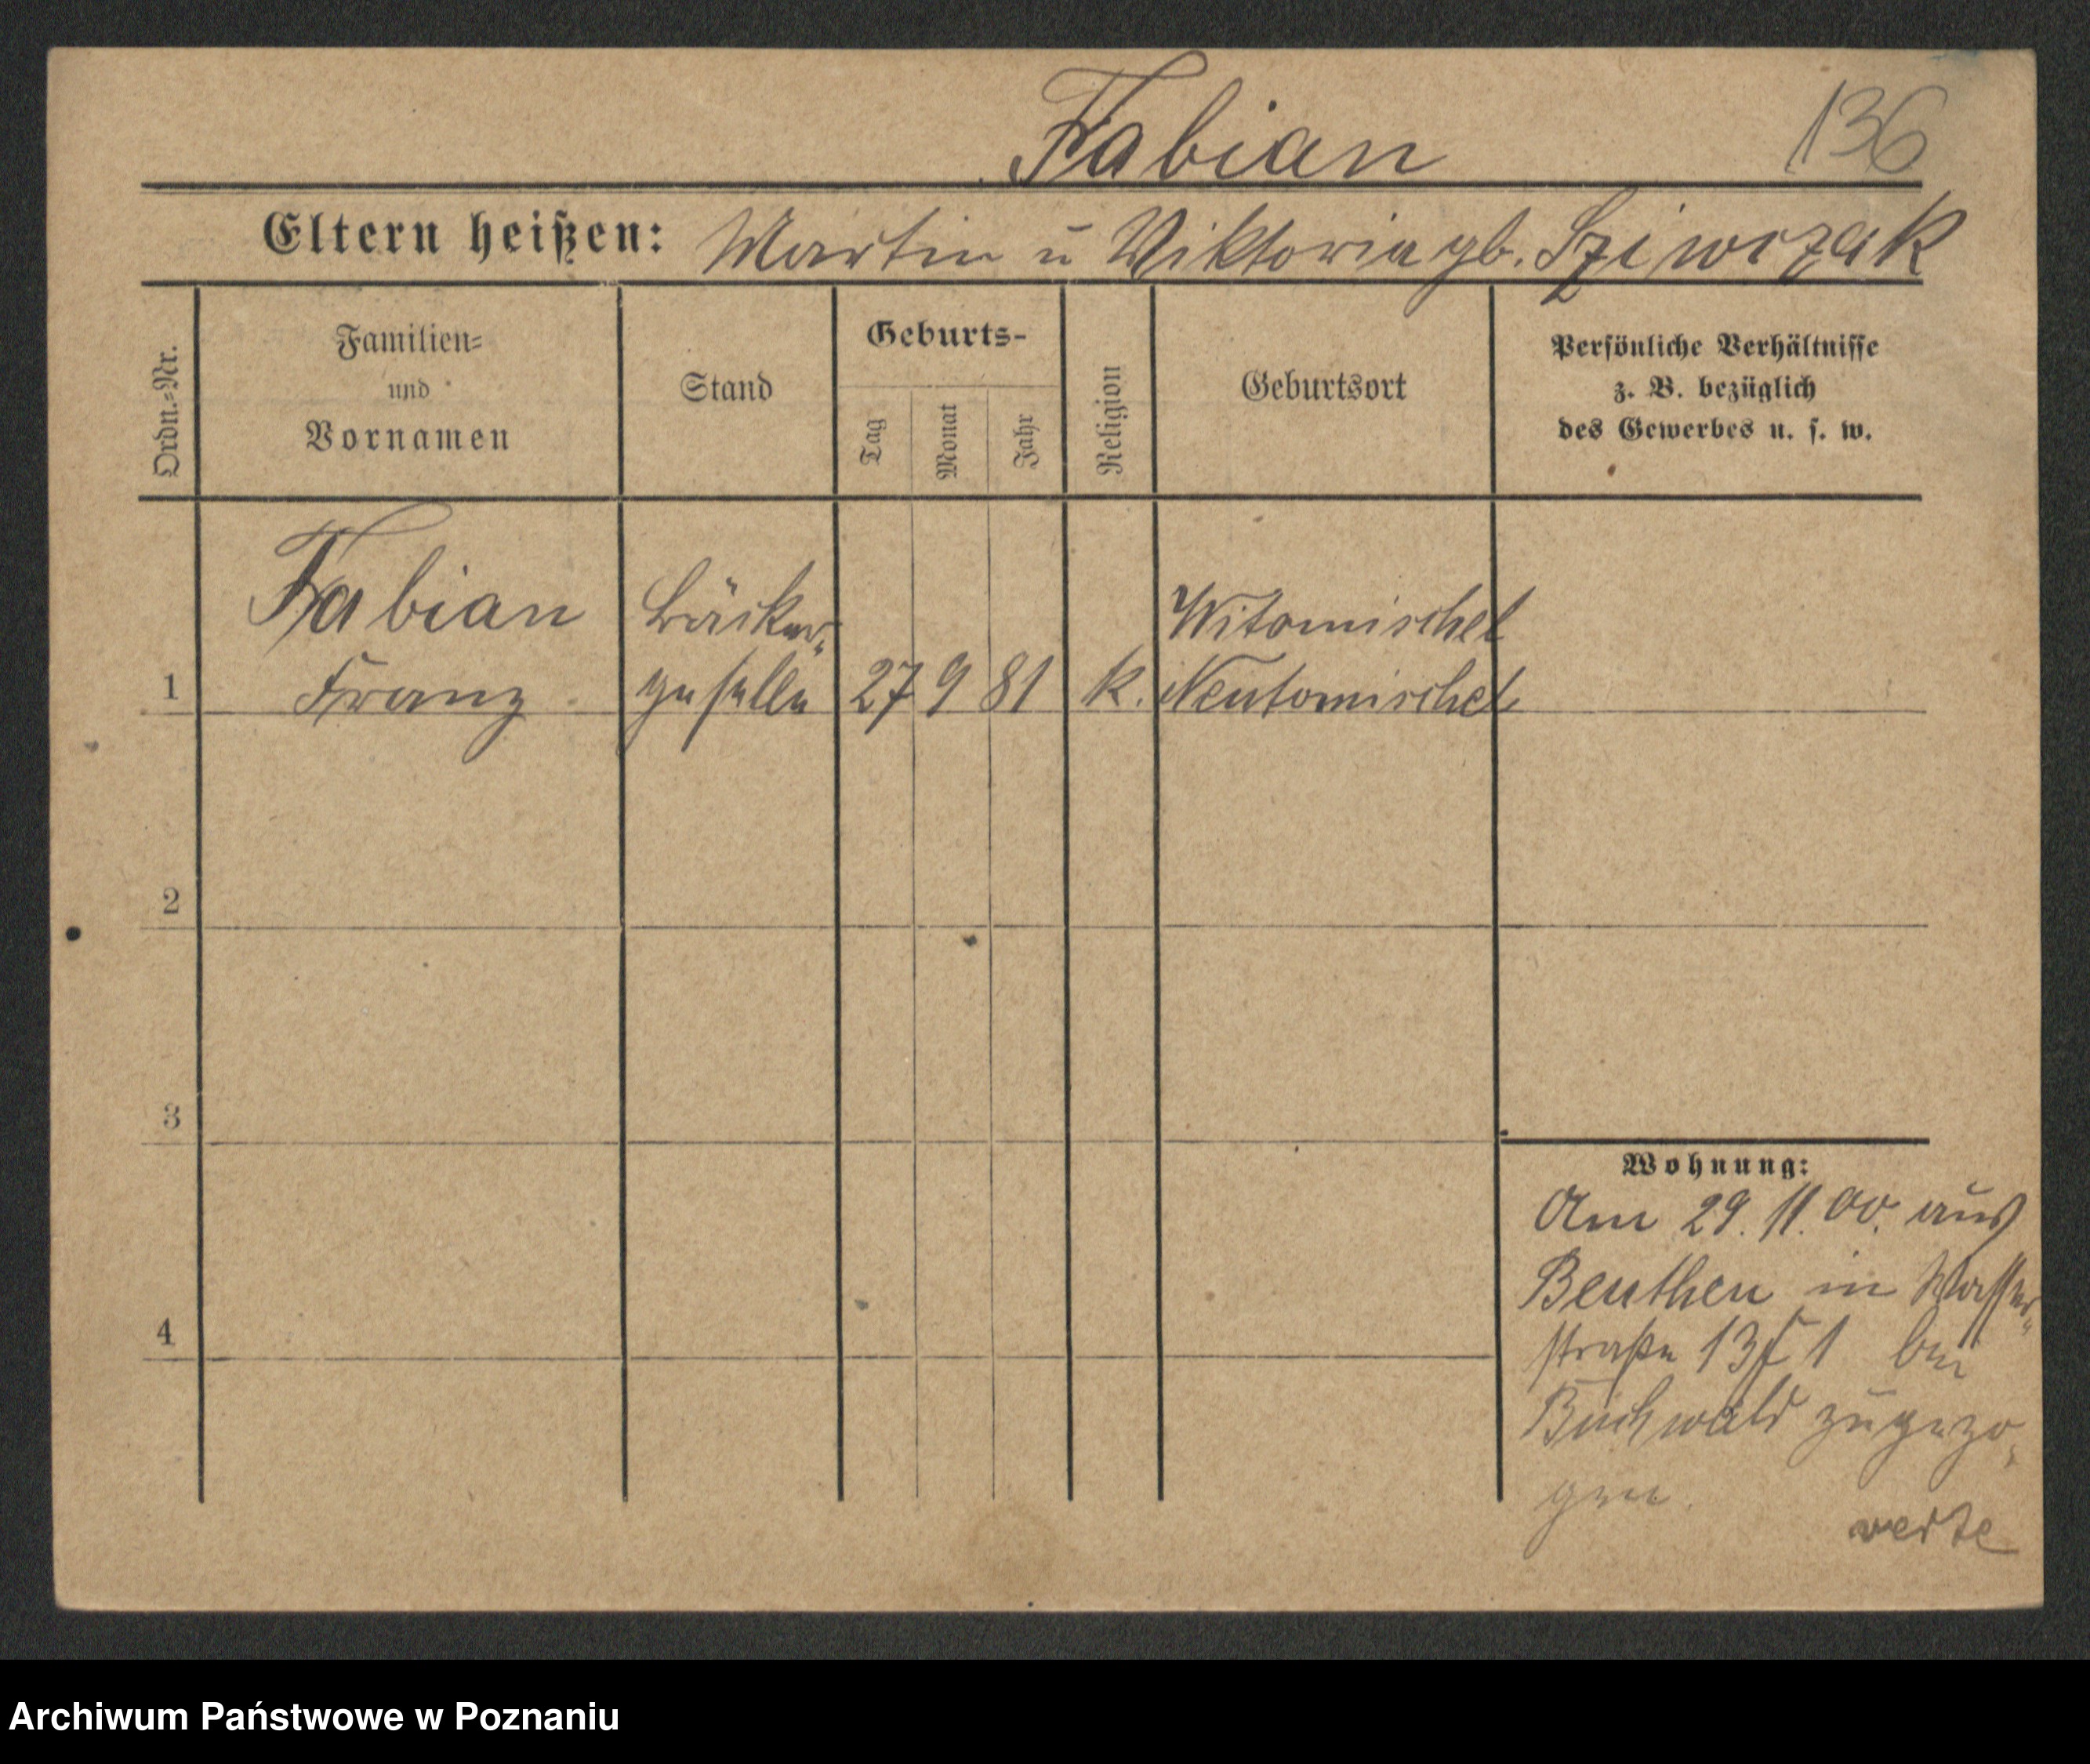 Fabian
136
Eltern heißen: Martin u Viktoria gb. Sziwczak
Ordn.=Nr.
Familien=
und
Vornamen
Stand
Geburts-
Tag
Monat
Jahr
Religion
Geburtsort
Persönliche Verhältnisse
z. B. bezüglich
des Gewerbes u. s. w.
Fabian Bäcker- Witomischel
1 Franz geselle 27 9 81 k. Neutomischel
2
3
4
Wohnung:
Am 29. 11. 00. aus
Beuthen in Wasser-
straße 13 1 bei
Buchwald zugezo-
gen.
verte
Archiwum Państwowe w Poznaniu